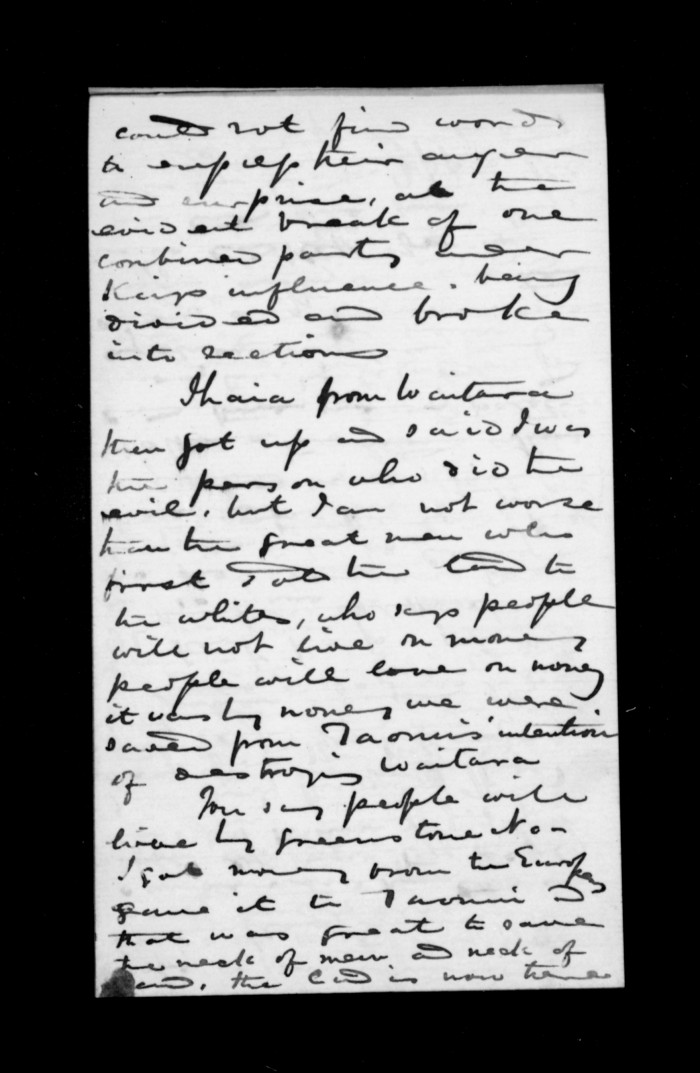 could not find words
to express their anger
and surprise, at the
evident break of one
combined party under
Kings influence. being
divided and broke
into sections
Ihaia from Waitara
then got up and said I was
the person who did the
evil, but I am not worse
than the great men who
first sold the land to
the whites, who says people
will not live on money
people will live on money
it was by money we were
saved from Taonui's intention
of destroying Waitara
You say people will
live by greenstone No -
I got money from the Europeans
gave it to Taonui and
that was great to save
the neck of men and neck of
land. the land is now